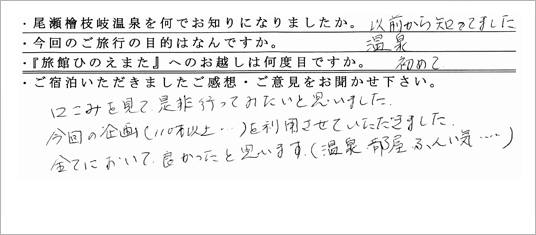 ・尾瀬檜枝岐温泉を何でお知りになりましたか。 以前から知ってました
・今回のご旅行の目的はなんですか。 温泉
・『旅館ひのえまた』へのお越しは何度目ですか。 初めて
・ご宿泊いただきましたご感想・ご意見をお聞かせ下さい。
口こみを見て是非行ってみたいと思いました.
今回の企画(110才以上…)を利用させていただきました.
全てにおいて良かったと思います.(温泉 部屋 ふんい気….)